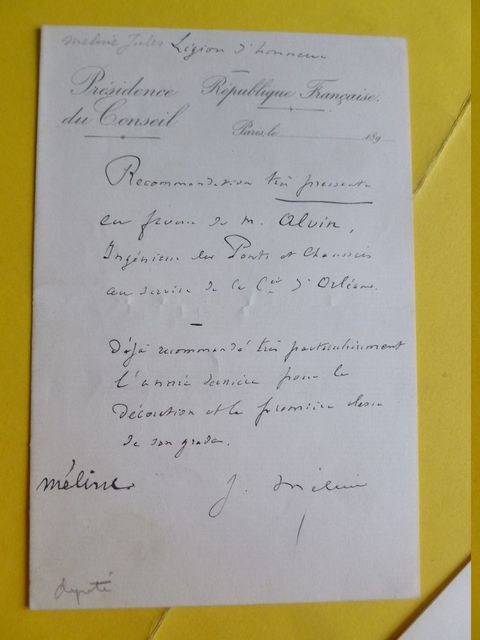 Meline Jules Légion d'honneur
Présidence
du Conseil
République Française.
Paris, le 189
Recommandation très pressante
en faveur de M. Alvin,
Ingénieur des Ponts et Chaussées
au service de la Cie d'Orléans.
Déjà recommandé très particulièrement
l'année dernière pour la
Décoration et la première classe
de son grade.
méline J. Méline
député